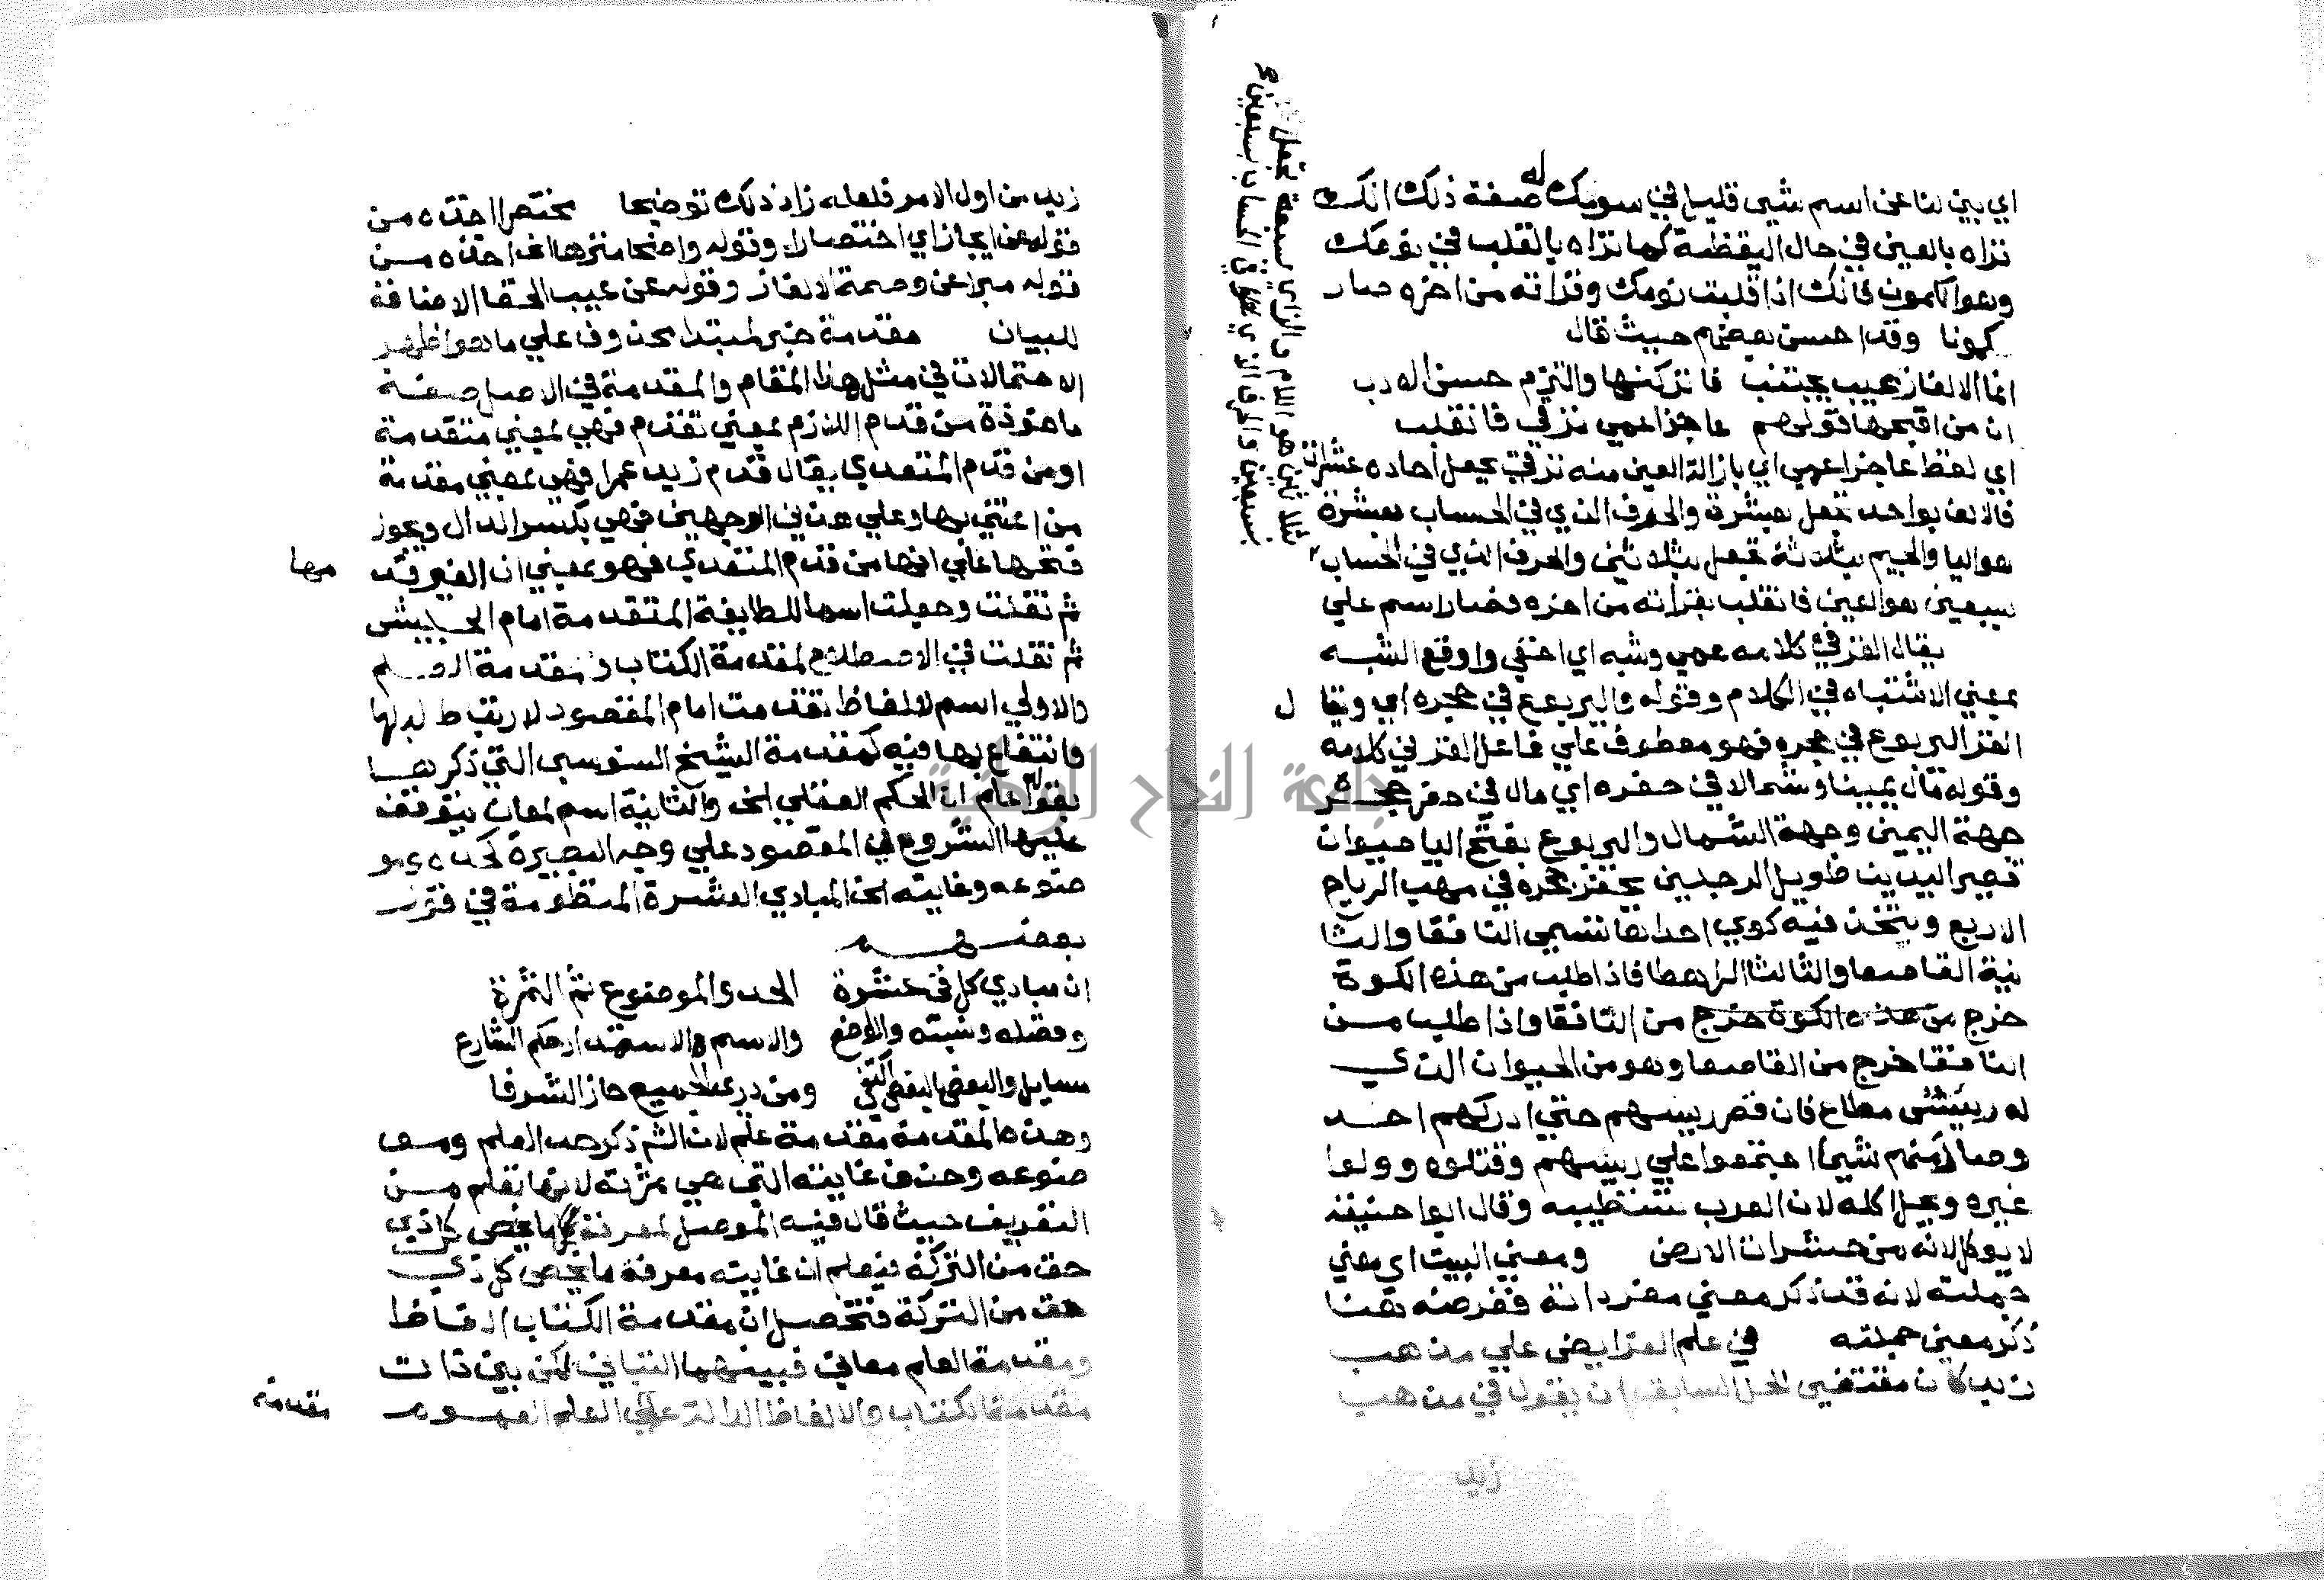 اي بين لنا عن اسم شيى قليل في سومك له صفة ذلك انك
تراه بالعين في حال اليقظة كما تراه بالقلب في نومك
وهو الكمون فانك اذا قلبت نومك وقراته من اخره صار
كمونا وقد احسن بعضهم حيث قال
انما الالغاز عيب يجتنب فاتركنها والتزم حسن الادب
ان من اقبحها قولهم عاجز اعمي نزقي فانقلب
اي لفظ عاجز اعمي اي بازالة العين منه نزقي بجعل احاده عشرات
فالالف بواحد تجعل بعشرة والحرف الذي في الحساب بعشرة
هو اليا والجيم بثلاثة تجعل بثلاثين والحرف الذي في الحساب
ثلاثين هو اللام والزاي بسبعة تجعل
بسبعين والحرف الذي في الحساب بسبعين
بسبعين هو العين فانقلب بقراته من اخره فصار اسم علي
يقال الغز في كلامه عمي وشبه اي اخفي واوقع الشبه
بمعني الاشتباه في الكلام وقوله واليربوع في حجره اي ويقا ل
الغز اليربوع في حجره فهو معطوف علي فاعل الغز في كلامه
وقوله مال يمينا وشمالا في حفره اي مال في حفر حجره
جهة اليمين وجهة الشمال واليربوع بفتح اليا حيوان
قصير اليدين طويل الرجلين يحفر حجره في مهب الرياح
الاربع ويتخذ فيه كوي احداها تسمي النافقا والثا
نية القاصعا والثالثا الراهطا فاذا طلب من هذه الكوة
خرج من هذه الكوة خرج من النافقا واذا طلب من
النافقا خرج من القاصعا وهو من الحيوان الذي
له رييس مطاع فان قصر رييسهم حتي ادركهم احد
وصاد منهم شيا اجتمعوا علي رييسهم وقتلوه وولوا
غيره ويحل اكله لان العرب تستطيبه وقال ابوا حنيفة
لا يوكل لانه من حشرات الارض ومعني البيت اي معني
جملته لانه قد ذكر معني مفرداته فغرضه هنا
ذكر معني جملته في علم الفرايض علي مذهب
زيد كان مقتضي الحل السابق ان يقول في مذهب
زيد
زيد من اول الامر فلعله زاد ذلك توضيحا مختصرا اخذه من
قوله عن ايجاز اي اختصار وقوله واضحا منزها الخ اخذه من
قوله مبرا عن وصمة الالغاز وقوله عن عيب الخفا الاضافة
للبيان مقدمة خبر لمبتدا محذوف علي ما هو اظهر
الاحتمالات في مثل هذا المقام والمقدمة في الاصل صفة
ماخوذة من قدم اللازم بمعني تقدم فهي بمعني متقدمة
او من قدم المتعدي يقال قدم زيد عمرا فهي بمعني مقدمة
من اعتني بها وعلي هذين الوجهين فهي بكسر الدال ويجوز
فتحها علي انها من قدم المتعدي فهو بمعني ان الغير قد مها
ثم نقلت وجعلت اسما للطايفة المتقدمة امام الجيش
ثم نقلت في الاصطلاح لمقدمة الكتاب ومقدمة العلم
والاولي اسم لالفاظ تقدمت امام المقصود لارتباط له بها
وانتفاع بها فيه كمقدمة الشيخ السنوسي التي ذكرها
بقوله اعلم ان الحكم العقلي الخ والثانية اسم لمعان يتوقف
عليها الشروع في المقصود علي وجه البصيرة كحده ومو
ضوعه وغايته الخ المبادي العشرة المنظومة في قول
بعضهم
ان مبادي كل فن عشرة الحد والموضوع ثم الثمرة
وفضله ونسبته والواضع والاسم والاستمداد حكم الشارع
مسايل والبعض بالبعض اكتفي ومن دري الجميع حاز الشرفا
وهذه المقدمة مقدمة علم لان الشم ذكر حد العلم ومو
ضوعه وحذف غايته التي هي ثمرته لانها تعلم من
التعريف حيث قال فيه الموصل لمعرفة ما يخص كل ذي
حق من التركة فيعلم ان غايته معرفة ما يخص كل ذي
حق من التركة فتحصل ان مقدمة الكتاب الفاظ
ومقدمة العلم معاني فبينهما التباين لكن بين ذات
مقدمة الكتاب والالفاظ الدالة علي العلم العموم
مقدمة
جامعة النجاح الوطنية